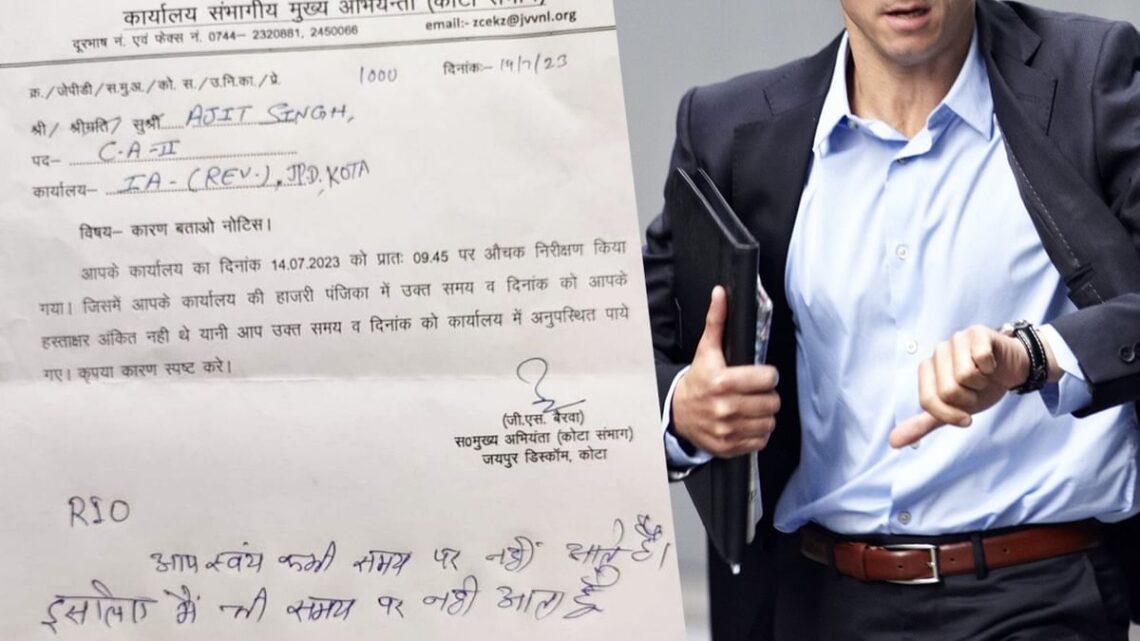 कार्यालय संभागीय मुख्य अभियन्ता (कोटा
दूरभाष नं. एवं फेक्स नं. 0744- 2320881, 2450066 email:- zcekz@jvvnl.org
क्र./जेपीडी/स.मु.अ./को. स./उ.नि.का./प्रे. 1000 दिनांकः- 19/7/23
श्री/ श्रीमति/ सुश्री AJIT SINGH,
पद– C.A-II
कार्यालय– IA-(REV.), JPD, KOTA
विषय– कारण बताओ नोटिस।
आपके कार्यालय का दिनांक 14.07.2023 को प्रातः 09.45 पर औचक निरीक्षण किया
गया। जिसमें आपके कार्यालय की हाजरी पंजिका में उक्त समय व दिनांक को आपके
हस्ताक्षर अंकित नही थे यानी आप उक्त समय व दिनांक को कार्यालय में अनुपस्थित पाये
गए। कृपया कारण स्पष्ट करे।
(जी.एस. बैरवा)
स०मुख्य अभियंता (कोटा संभाग)
जयपुर डिस्कॉम, कोटा
RIO
आप स्वंय कभी समय पर नहीं आते हैं।
इसलिए मैं भी समय पर नही आता हूँ